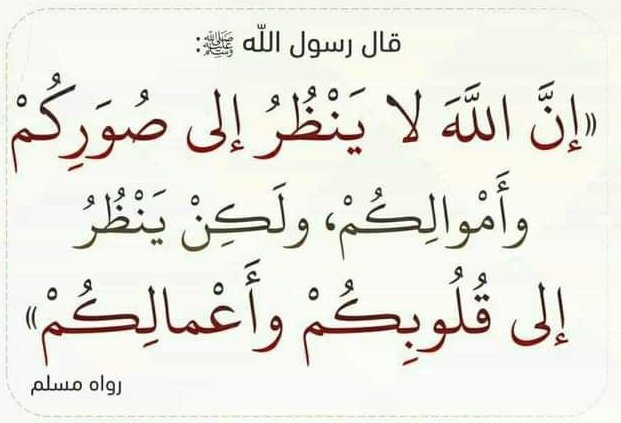 قال رسول الله ﷺ:
«إنَّ اللَّهَ لا يَنْظُرُ إلى صُوَرِكُمْ
وأَمْوالِكُمْ، ولَكِنْ يَنْظُرُ
إلى قُلُوبِكُمْ وأَعْمالِكُمْ»
رواه مسلم